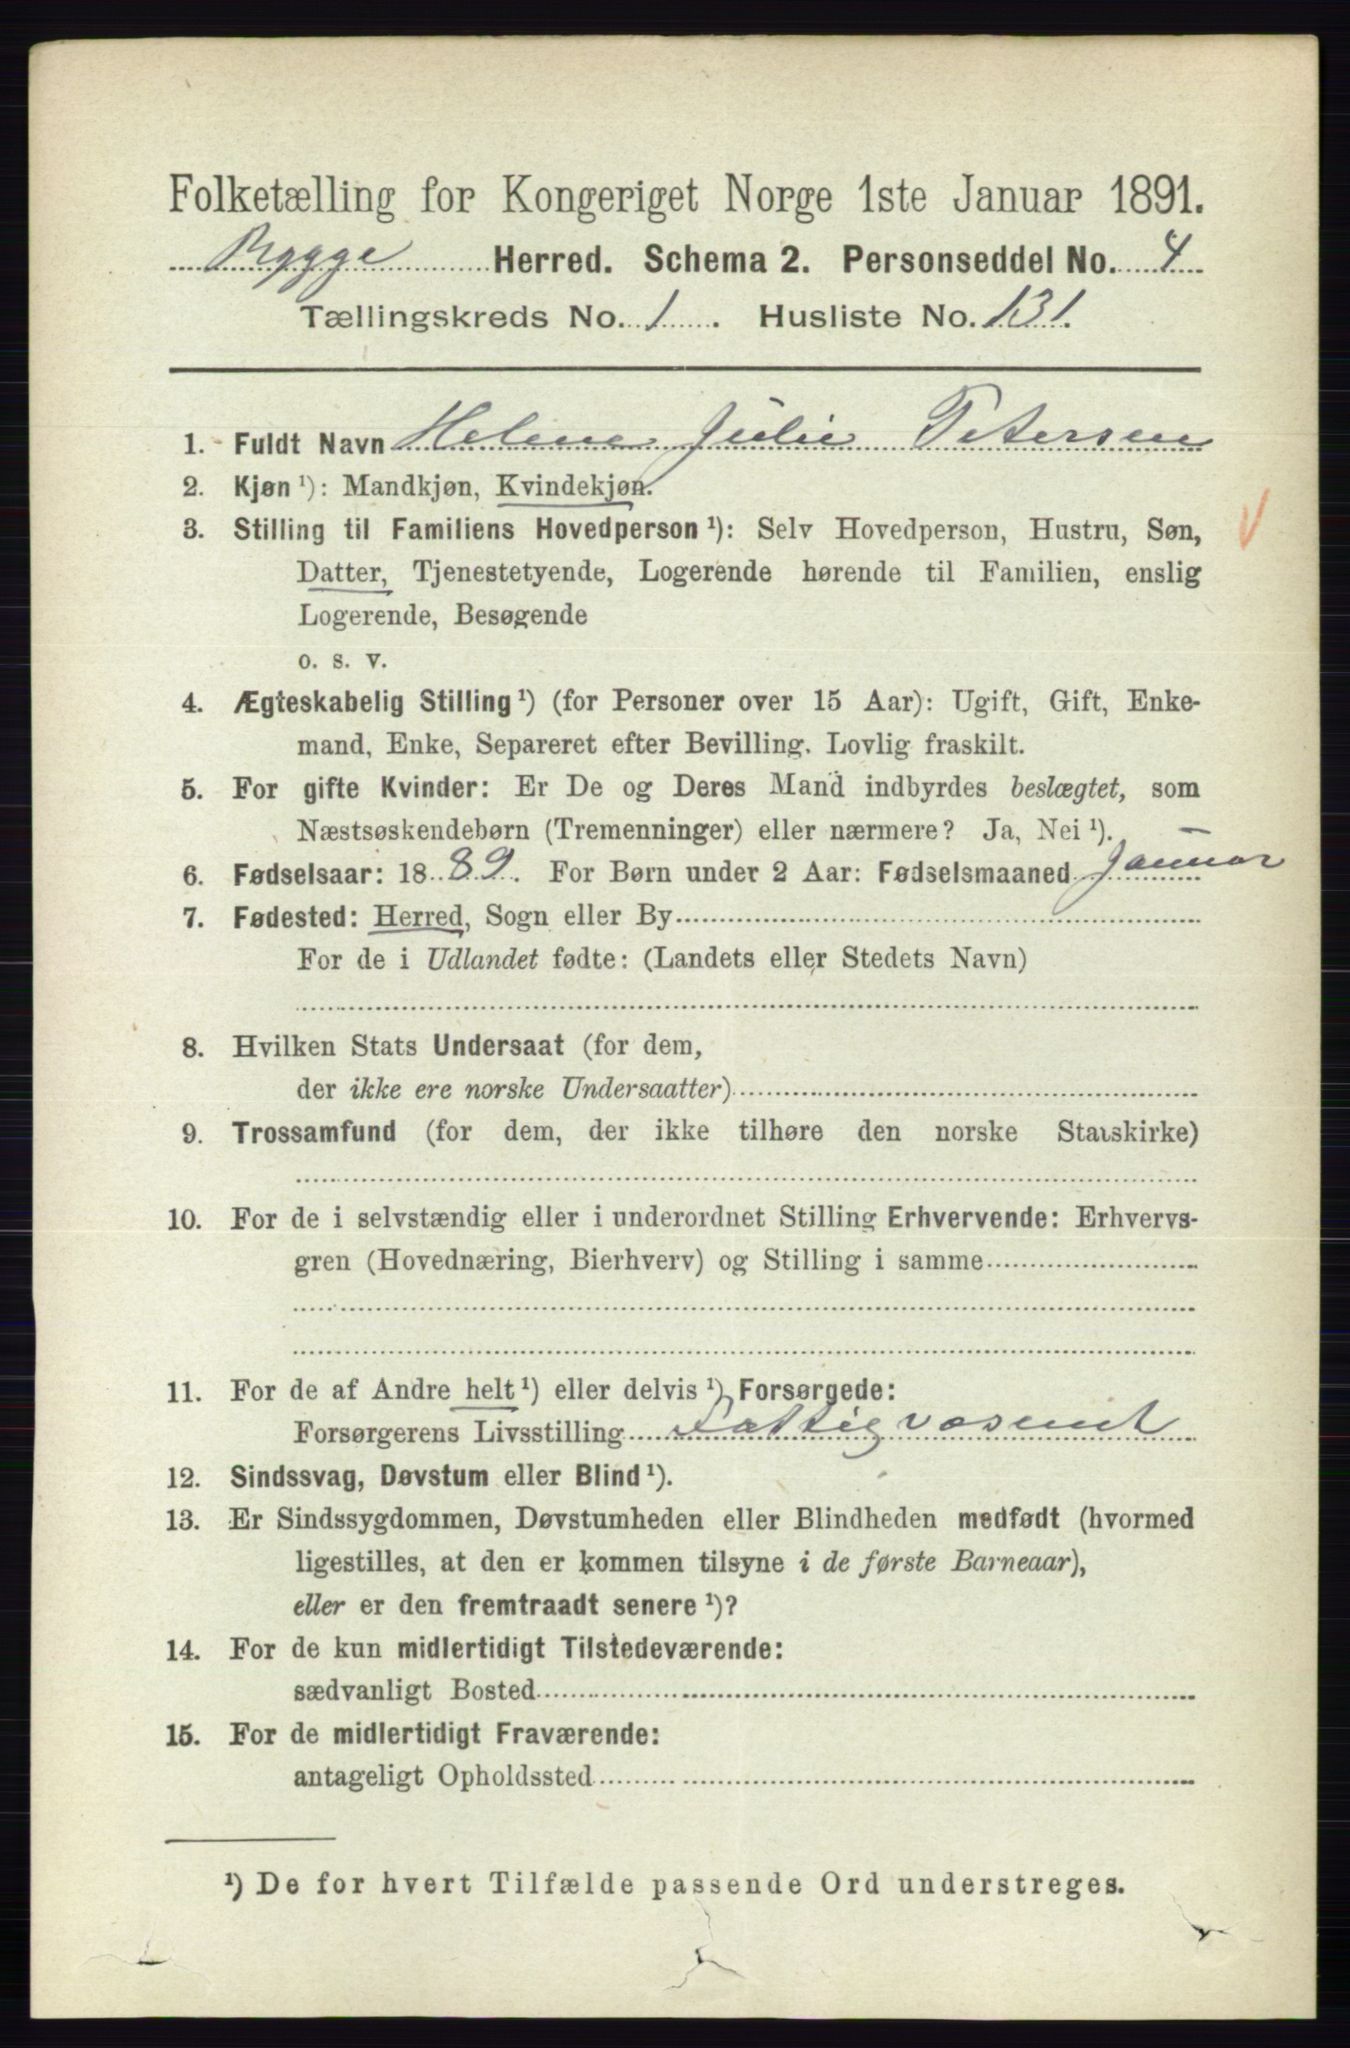 Folketælling for Kongeriget Norge 1ste Januar 1891.
Rygge Herred. Schema 2. Personseddel No. 4
Tællingskreds No. 1. Husliste No. 131.
1. Fuldt Navn Helene Julie Petersen
2. Kjøn ¹): Mandkjøn, Kvindekjøn.
3. Stilling til Familiens Hovedperson ¹): Selv Hovedperson, Hustru, Søn,
Datter, Tjenestetyende, Logerende hørende til Familien, enslig
Logerende, Besøgende
o. s. v.
4. Ægteskabelig Stilling ¹) (for Personer over 15 Aar): Ugift, Gift, Enke-
mand, Enke, Separeret efter Bevilling. Lovlig fraskilt.
5. For gifte Kvinder: Er De og Deres Mand indbyrdes beslægtet, som
Næstsøskendebørn (Tremenninger) eller nærmere? Ja, Nei ¹).
6. Fødselsaar: 1889. For Børn under 2 Aar: Fødselsmaaned Januar
7. Fødested: Herred, Sogn eller By
For de i Udlandet fødte: (Landets eller Stedets Navn)
8. Hvilken Stats Undersaat (for dem,
der ikke ere norske Undersaatter)
9. Trossamfund (for dem, der ikke tilhøre den norske Statskirke)
10. For de i selvstændig eller i underordnet Stilling Erhvervende: Erhvervs-
gren (Hovednæring, Bierhverv) og Stilling i samme
11. For de af Andre helt ¹) eller delvis ¹) Forsørgede:
Forsørgerens Livsstilling Fattigvæsenet
12. Sindssvag, Døvstum eller Blind ¹).
13. Er Sindssygdommen, Døvstumheden eller Blindheden medfødt (hvormed
ligestilles, at den er kommen tilsyne i de første Barneaar),
eller er den fremtraadt senere ¹)?
14. For de kun midlertidigt Tilstedeværende:
sædvanligt Bosted
15. For de midlertidigt Fraværende:
antageligt Opholdssted
¹) De for hvert Tilfælde passende Ord understreges.